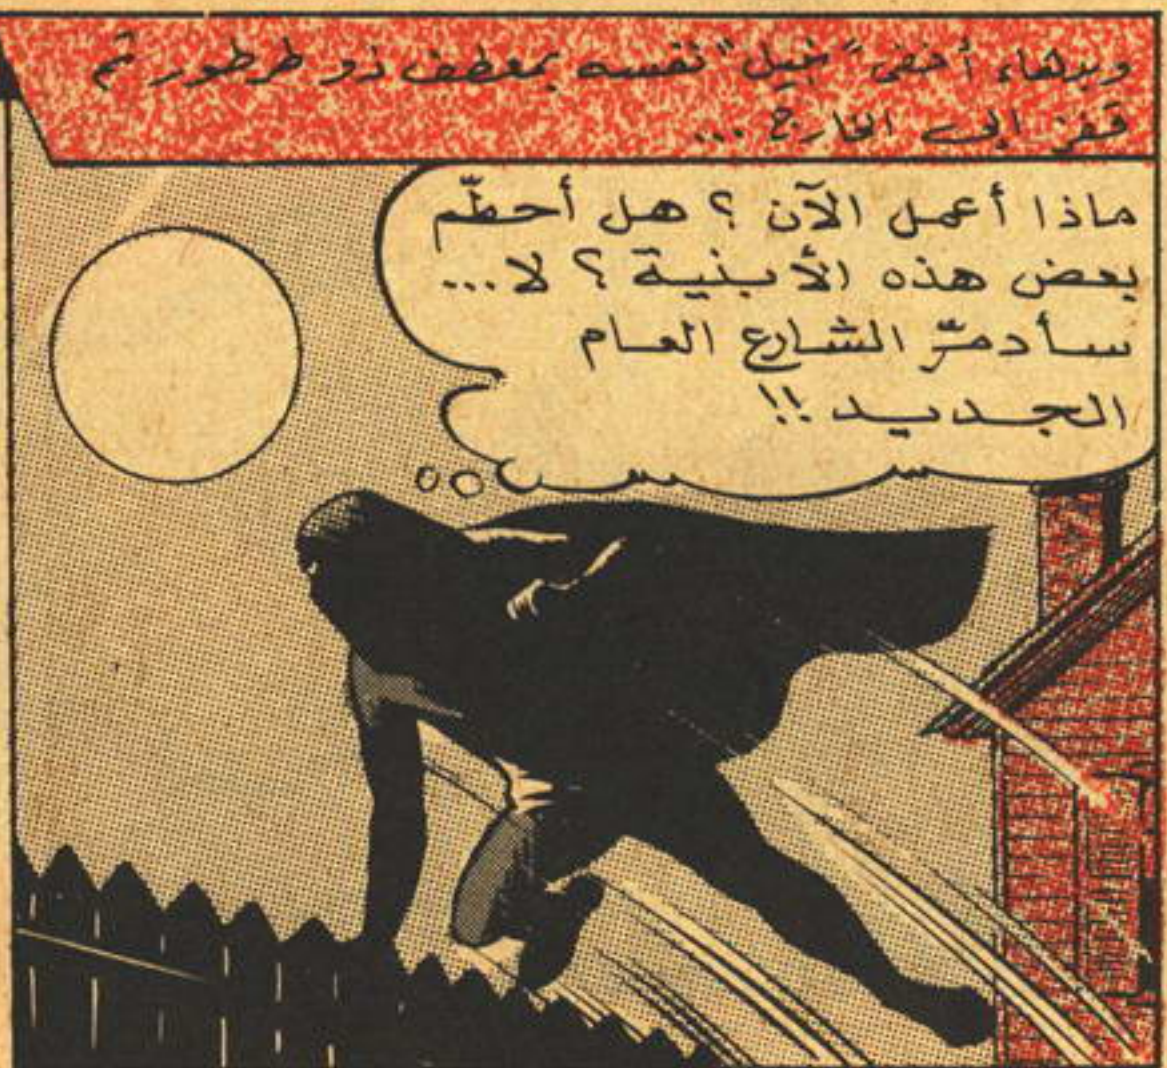 وبدهاء أخفى "نبيل" نفسه بمعطف ذو طرطور ثم
قفز الى الخارج ...
ماذا أعمل الآن ؟ هل أحطّم
بعض هذه الأبنية ؟ لا ...
سأدمّر الشارع العام
الجديد !!